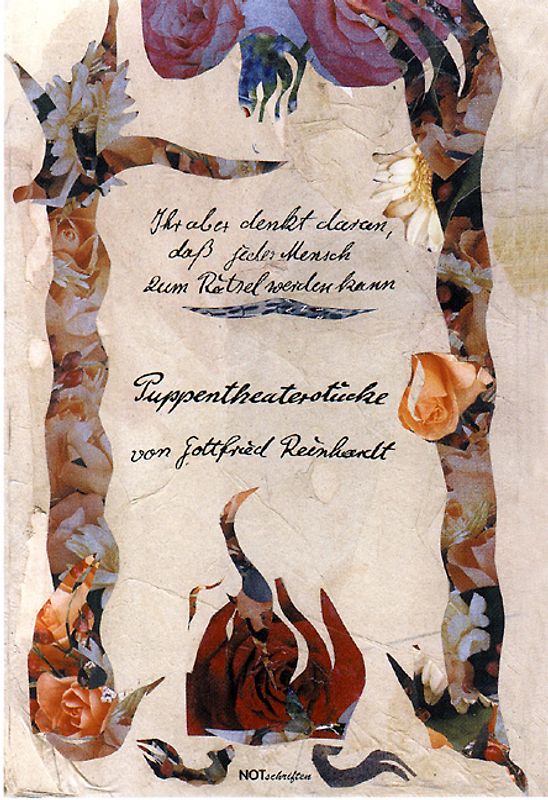 Ihr aber denkt daran,
daß jeder Mensch
zum Rätsel werden kann
Puppentheaterstücke
von Gottfried Reinhardt
NOTschriften